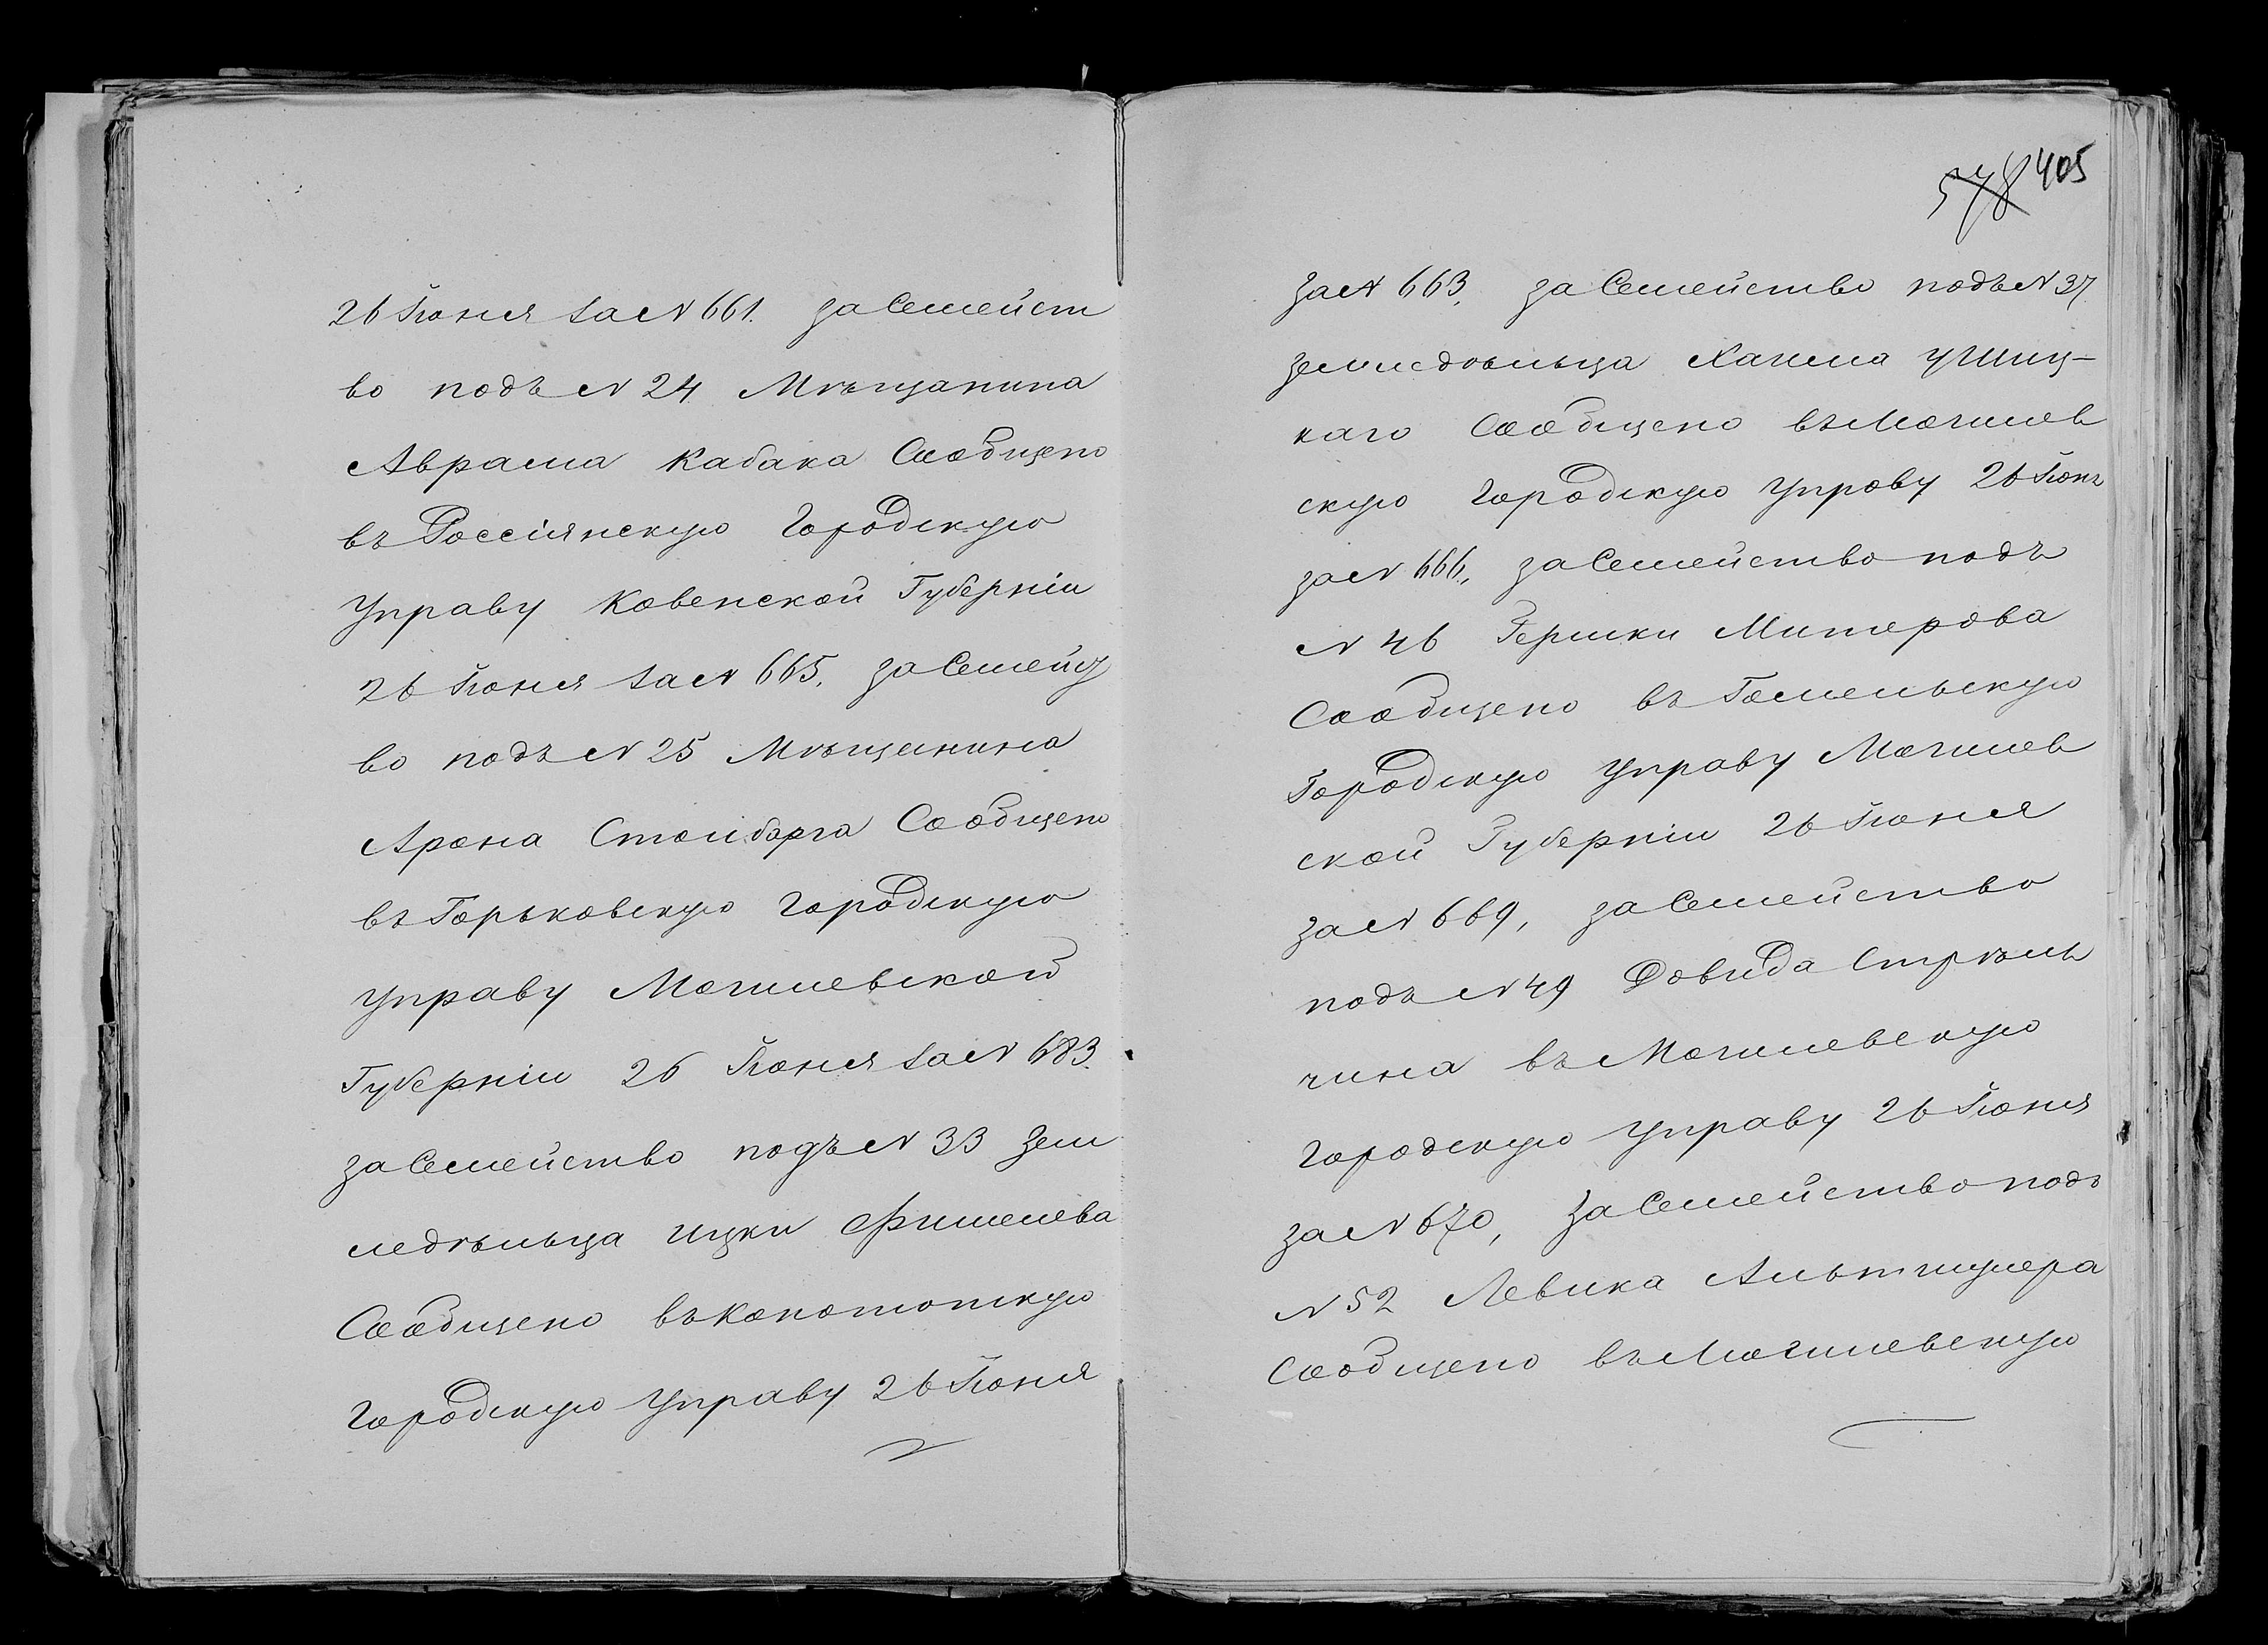 26 Іюня за № 661. за Семейст
во подъ № 24 Мѣщанина
Аврама Кабака Сообщено
въ Россіянскую Городскую
Управу Ковенской Губерніи
26 Іюня за № 665. за Семейст
во подъ № 25 Мѣщанина
Арона Столбарга Сообщено
въ Горьковскую Городскую
Управу Могилевской
Губерніи 26 Іюня за № 683.
за Семейство подъ № 33 Зем
ледѣльца Ицки Фишелева
Сообщено въ Конотопскую
Городскую Управу 26 Іюня
578 405
за № 663, за Семейство подъ № 37
земледѣльца Хаима Ушиц-
каго Сообщено въ Могилев
скую Городскую Управу 26 Іюня
за № 666, за Семейство подъ
№ 46 Гершки Митерова
Сообщено въ Гомельскую
Городскую Управу Могилев
ской Губерніи 26 Іюня
за № 669, за Семейство
подъ № 49 Довида Стрѣль
чина въ Могилевскую
Городскую Управу 26 Іюня
за № 670, за Семейство подъ
№ 52 Левика Альтшулера
Сообщено въ Могилевскую